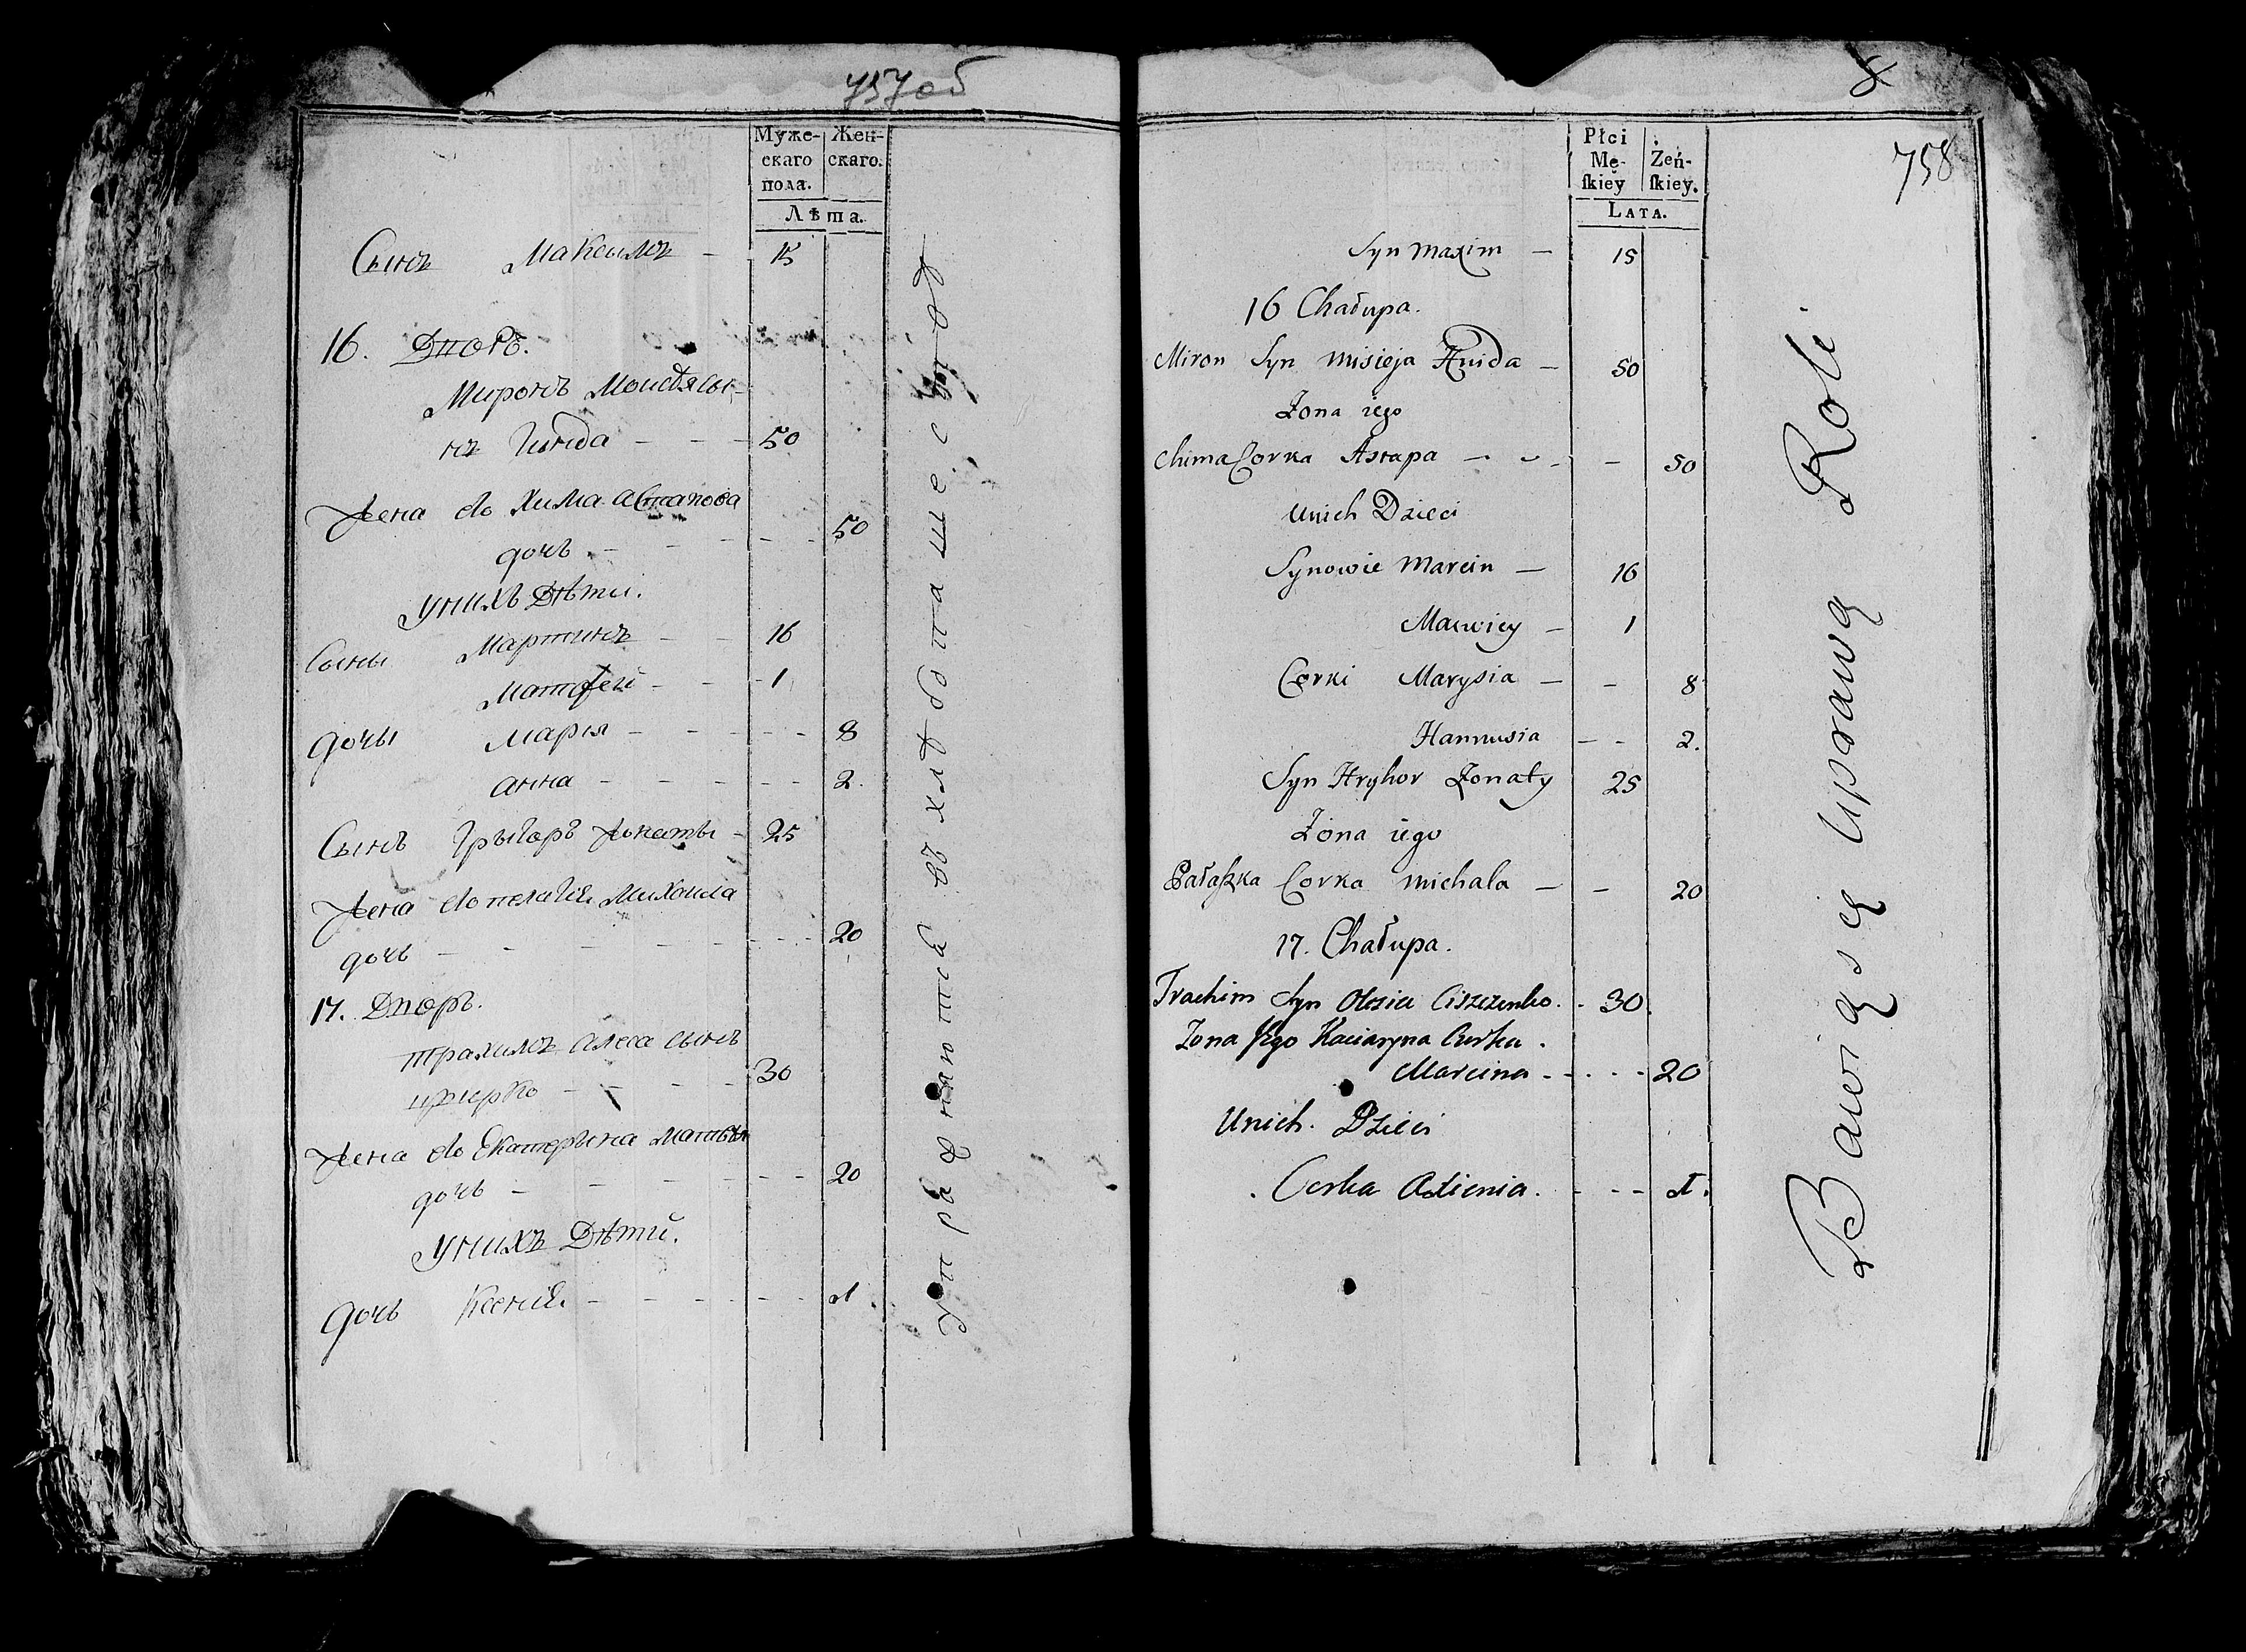 757об
Муже- Жен-
скаго скаго.
пола.
Лѣта.
Сынъ Максимъ - 15
16. Дворъ.
Миронъ Моисѣя сы-
нъ Гнида - - - 50
Жена его Хима Астапова
дочь - - - - - 50
У нихъ Дѣти.
Сыны Мартинъ - - 16
Матфей - - - 1
дочы Марія - - - - - 8
Анна - - - - - 2.
Сынъ Грыгоръ жонаты - 25
Жена его пелагія Михаила
дочь - - - - - - - 20
17. Дворъ.
Трахимъ Алеса сынъ
- - - - 30
Жена его Екатерына
дочь - - - - - - 20
У нихъ Дѣти.
дочь Ксенія - - - - - - 1
Упражняются въ хлѣбопашествѣ
8
758
Płci
Mę- Żeń-
ſkiey ſkiey.
LATA.
Syn Maxim — 15
16 Chałupa.
Miron Syn Misieja Hnida — 50
Żona iego
Chima Corka Astapa - - - 50
U nich Dzieci
Synowie Marcin — 16
Maciey — 1
Corki Marysia — - 8
Hannusia - - 2.
Syn Hryhor Żonaty 25
Żona iego
Pałaszka Corka Michala — - 20
17. Chałupa.
Trachim Syn Olesia Ciszczenko. - 30
Zona Jego Kaciaryna Curka.
Marcina - - - - 20
U nich. Dzieci
Corka Axienia. - - - 1.
Bawią się Uprawą Roli